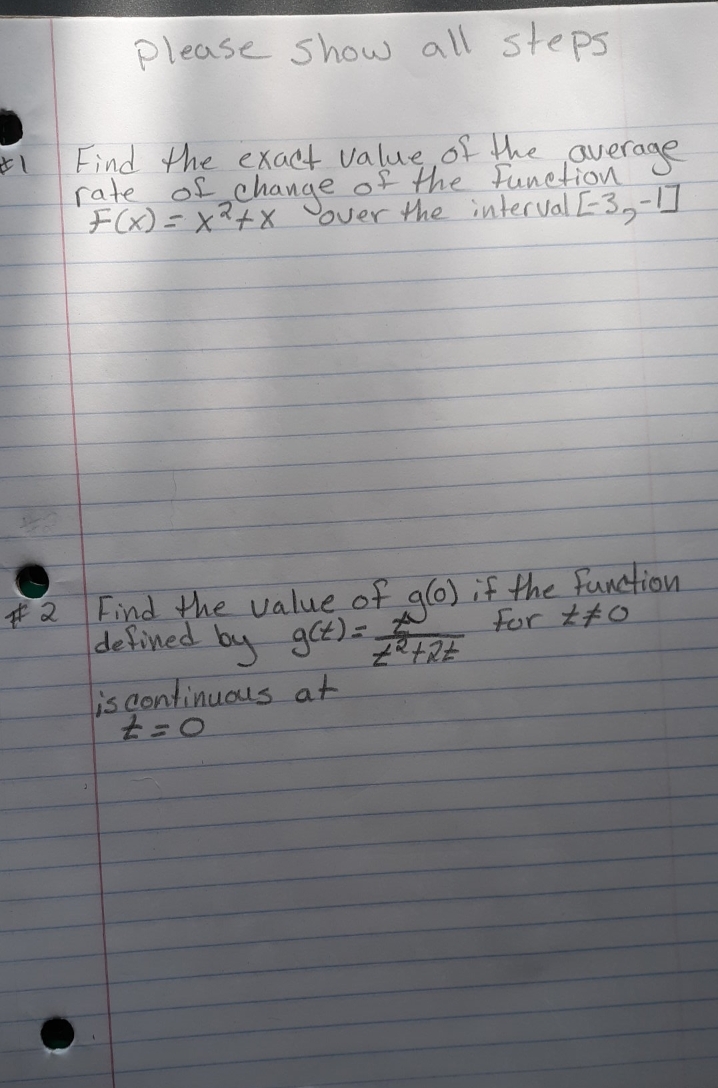 please show all steps
#1 Find the exact value of the average
rate of change of the function
F(x) = x²+x over the interval [-3,-1]
#2 Find the value of g(0) if the function
defined by g(t) = t/(t²+2t) for t≠0
is continuous at
t=0